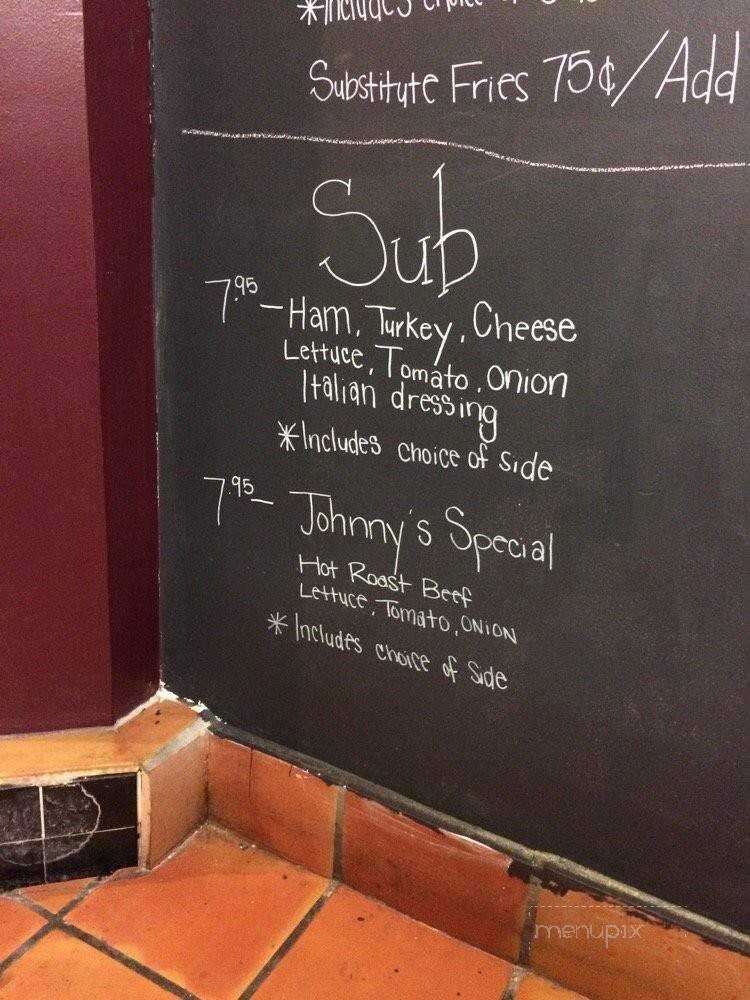 *Includes choice of
Substitute Fries 75¢/Add
Sub
7.95 - Ham, Turkey, Cheese
Lettuce, Tomato, Onion
Italian dressing
*Includes choice of side
7.95 - Johnny's Special
Hot Roast Beef
Lettuce, Tomato, Onion
* Includes choice of Side
menupix